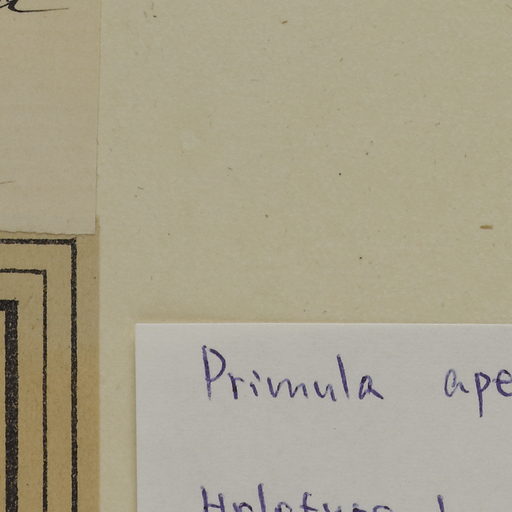 Primula ape
Holotypus !